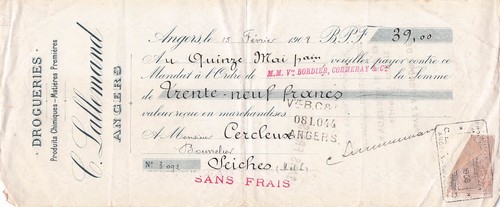 DROGUERIES
Produits Chimiques - Matières Premières
C. Lallemand
ANGERS
Angers, le 15 Février 1909 B.P.F. 39,00
Au Quinze Mai prn, veuillez payer contre ce
Mandat à l'Ordre de M.M. Vve BORDIER, CORMERAY & Cie la Somme
de Trente-neuf francs
valeur reçue en marchandises.
Vve B.C. & Cie
081.044
ANGERS
A Monsieur Cercleux
Bourrelier
Seiches (M et L)
SANS FRAIS